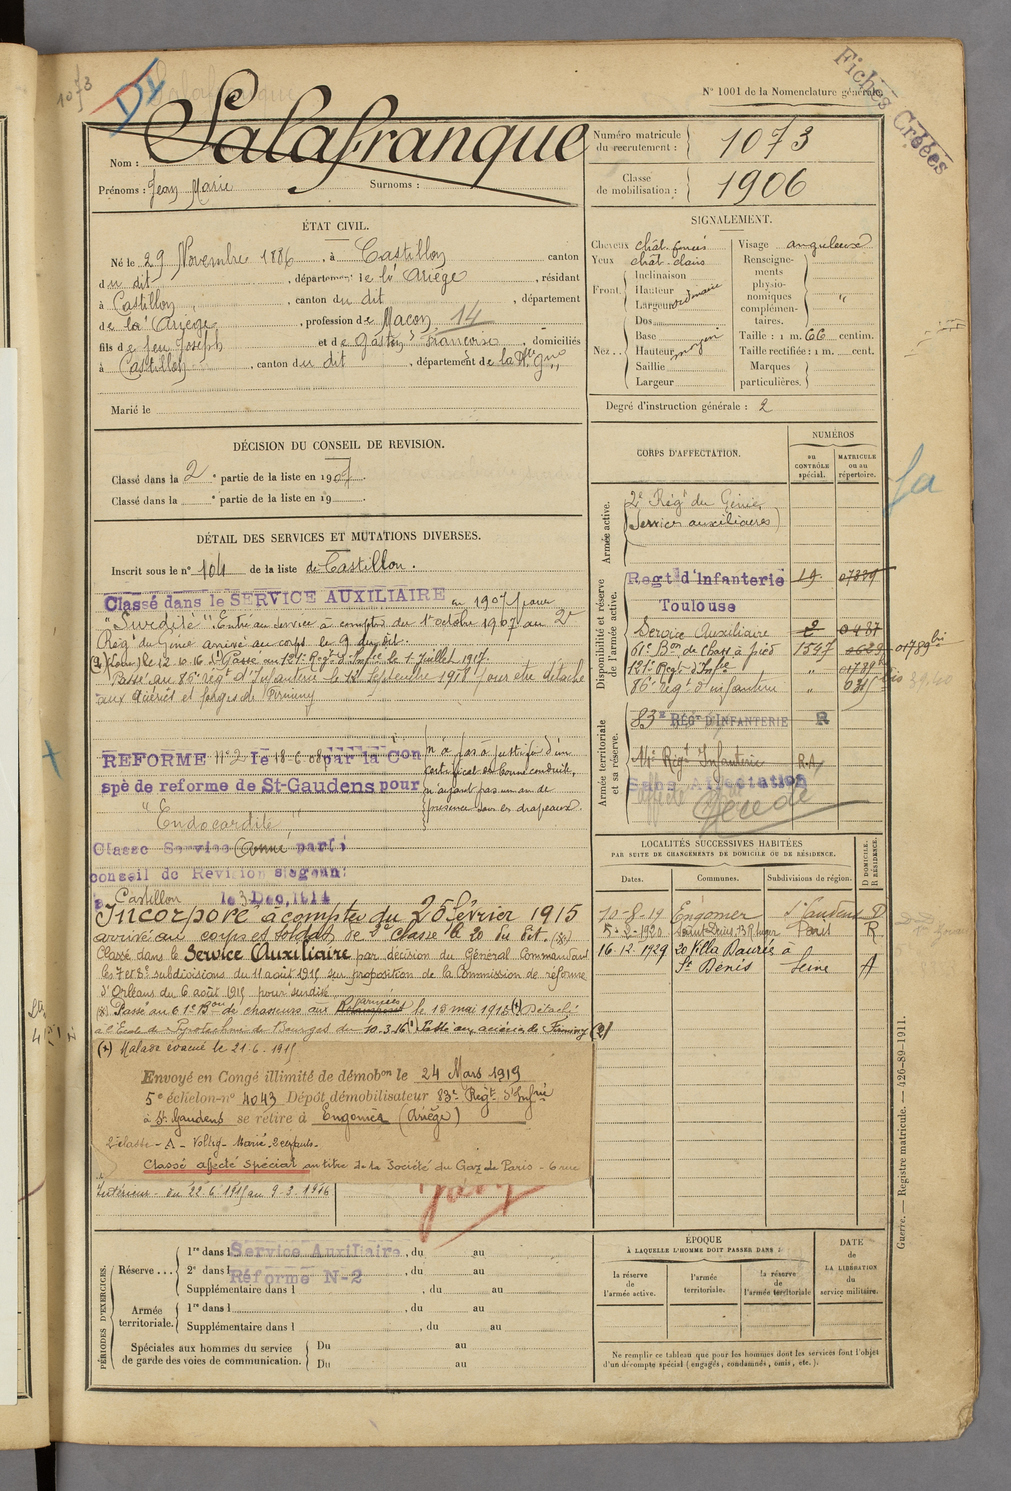 1073
N° 1001 de la Nomenclature générale
Fiches Créées
Nom : Salafranque
Prénoms : Jean Marie Surnoms :
Numéro matricule du recrutement : 1073
Classe de mobilisation : 1906
ÉTAT CIVIL.
Né le 29 Novembre 1886, à Castillon canton
du dit, département de la Ariège, résidant
à Castillon, canton du dit, département
de la Ariège, profession de Maçon 14
fils de feu Joseph et de Françoise, domiciliés
à Castillon, canton du dit, département de la
Marié le
SIGNALEMENT.
Cheveux chât. foncés
Yeux chât. clairs
Front
Inclinaison
Hauteur
Largeur ordinaire
Nez
Dos
Base
Hauteur moyen
Saillie
Largeur
Visage anguleux
Renseignements physionomiques complémentaires. "
Taille : 1 m. 66 centim.
Taille rectifiée : 1 m. cent.
Marques particulières.
Degré d'instruction générale : 2
DÉCISION DU CONSEIL DE REVISION.
Classé dans la 2e partie de la liste en 1907.
Classé dans la e partie de la liste en 19 .
DÉTAIL DES SERVICES ET MUTATIONS DIVERSES.
Inscrit sous le n° 104 de la liste de Castillon.
Classé dans le SERVICE AUXILIAIRE en 1907 pour
"Surdité". Entré au service à compter du 1er octobre 1907 au 2e
Rég.t du Génie arrivé au corps le 9 du dit.
le 12.10.16 Passé au 121e Régt d'Infie le 1 Juillet 1917.
Passé au 86e régt d'Infanterie le 12 Septembre 1918 pour être détaché
aux aciéries et forges de Firminy
REFORME N° 2 le 18-6-08 par la Con
spé de reforme de St-Gaudens pour
"Endocardite"
n'a pas à justifier d'un
certificat de bonne conduite,
n'ayant pas un an de
présence sous les drapeaux.
Classé Service Armé par le
conseil de Révision siégeant
à Castillon le 3 Dec. 1914
Incorporé à compter du 25 février 1915
arrivé au corps et soldat de 2e classe le 20 du dit.
Classé dans le Service Auxiliaire par décision du Général Commandant
les 7e et 8e subdivisions du 11 août 1915 sur proposition de la Commission de réforme
d'Orléans du 6 août 1915 pour surdité.
Passé au 61e Bon de chasseurs aux armées le 18 mai 1915 Détaché
à l'Ecole de Pyrotechnie de Bourges du 10.3.16 Passé aux aciéries de Firminy (2)
(x) Malade évacué le 21-6-1915
Envoyé en Congé illimité de démobon le 24 Mars 1919
5e échelon n° 4043 Dépôt démobilisateur 83e Régt d'Infrie
à St. Gaudens se retire à Engomer (Ariège)
Classé affecté spécial au titre de la Société du Gaz de Paris - 6 rue
Intérieur - du 22-6-1915 au 9-3-1916
CORPS D'AFFECTATION.
NUMÉROS
au CONTRÔLE spécial.
MATRICULE ou au répertoire.
Armée active.
2e Régt du Génie
(Services auxiliaires)
Disponibilité et réserve de l'armée active.
Regt d'Infanterie 19
Toulouse
Service Auxiliaire 2 0487
61e Bon de Chass. à pied 1547 01789 bis
121e Regt d'Infie "
86e régt d'infanterie "
Armée territoriale et sa réserve.
83e REGT D'INFANTERIE R
Regt Infanterie R.A
Sans Affectation
LOCALITÉS SUCCESSIVES HABITÉES
PAR SUITE DE CHANGEMENTS DE DOMICILE OU DE RÉSIDENCE.
Dates. Communes. Subdivisions de région. D DOMICILE. R RÉSIDENCE.
10-8-19 Engomer St Gaudens D
5-2-1920 R
16-12-1929 20 Villa Daurès à
St Denis Seine A
PÉRIODES D'EXERCICES.
Réserve...
1re dans l Service Auxiliaire, du au
2e dans l Réformé N-2, du au
Supplémentaire dans l , du au
Armée territoriale.
1re dans l , du au
Supplémentaire dans l , du au
Spéciales aux hommes du service de garde des voies de communication.
Du au
Du au
ÉPOQUE
À LAQUELLE L'HOMME DOIT PASSER DANS :
la réserve de l'armée active.
l'armée territoriale.
la réserve de l'armée territoriale
DATE de LA LIBÉRATION du service militaire.
Ne remplir ce tableau que pour les hommes dont les services font l'objet
d'un décompte spécial (engagés, condamnés, omis, etc.).
Guerre. — Registre matricule. — 426-89-1911.